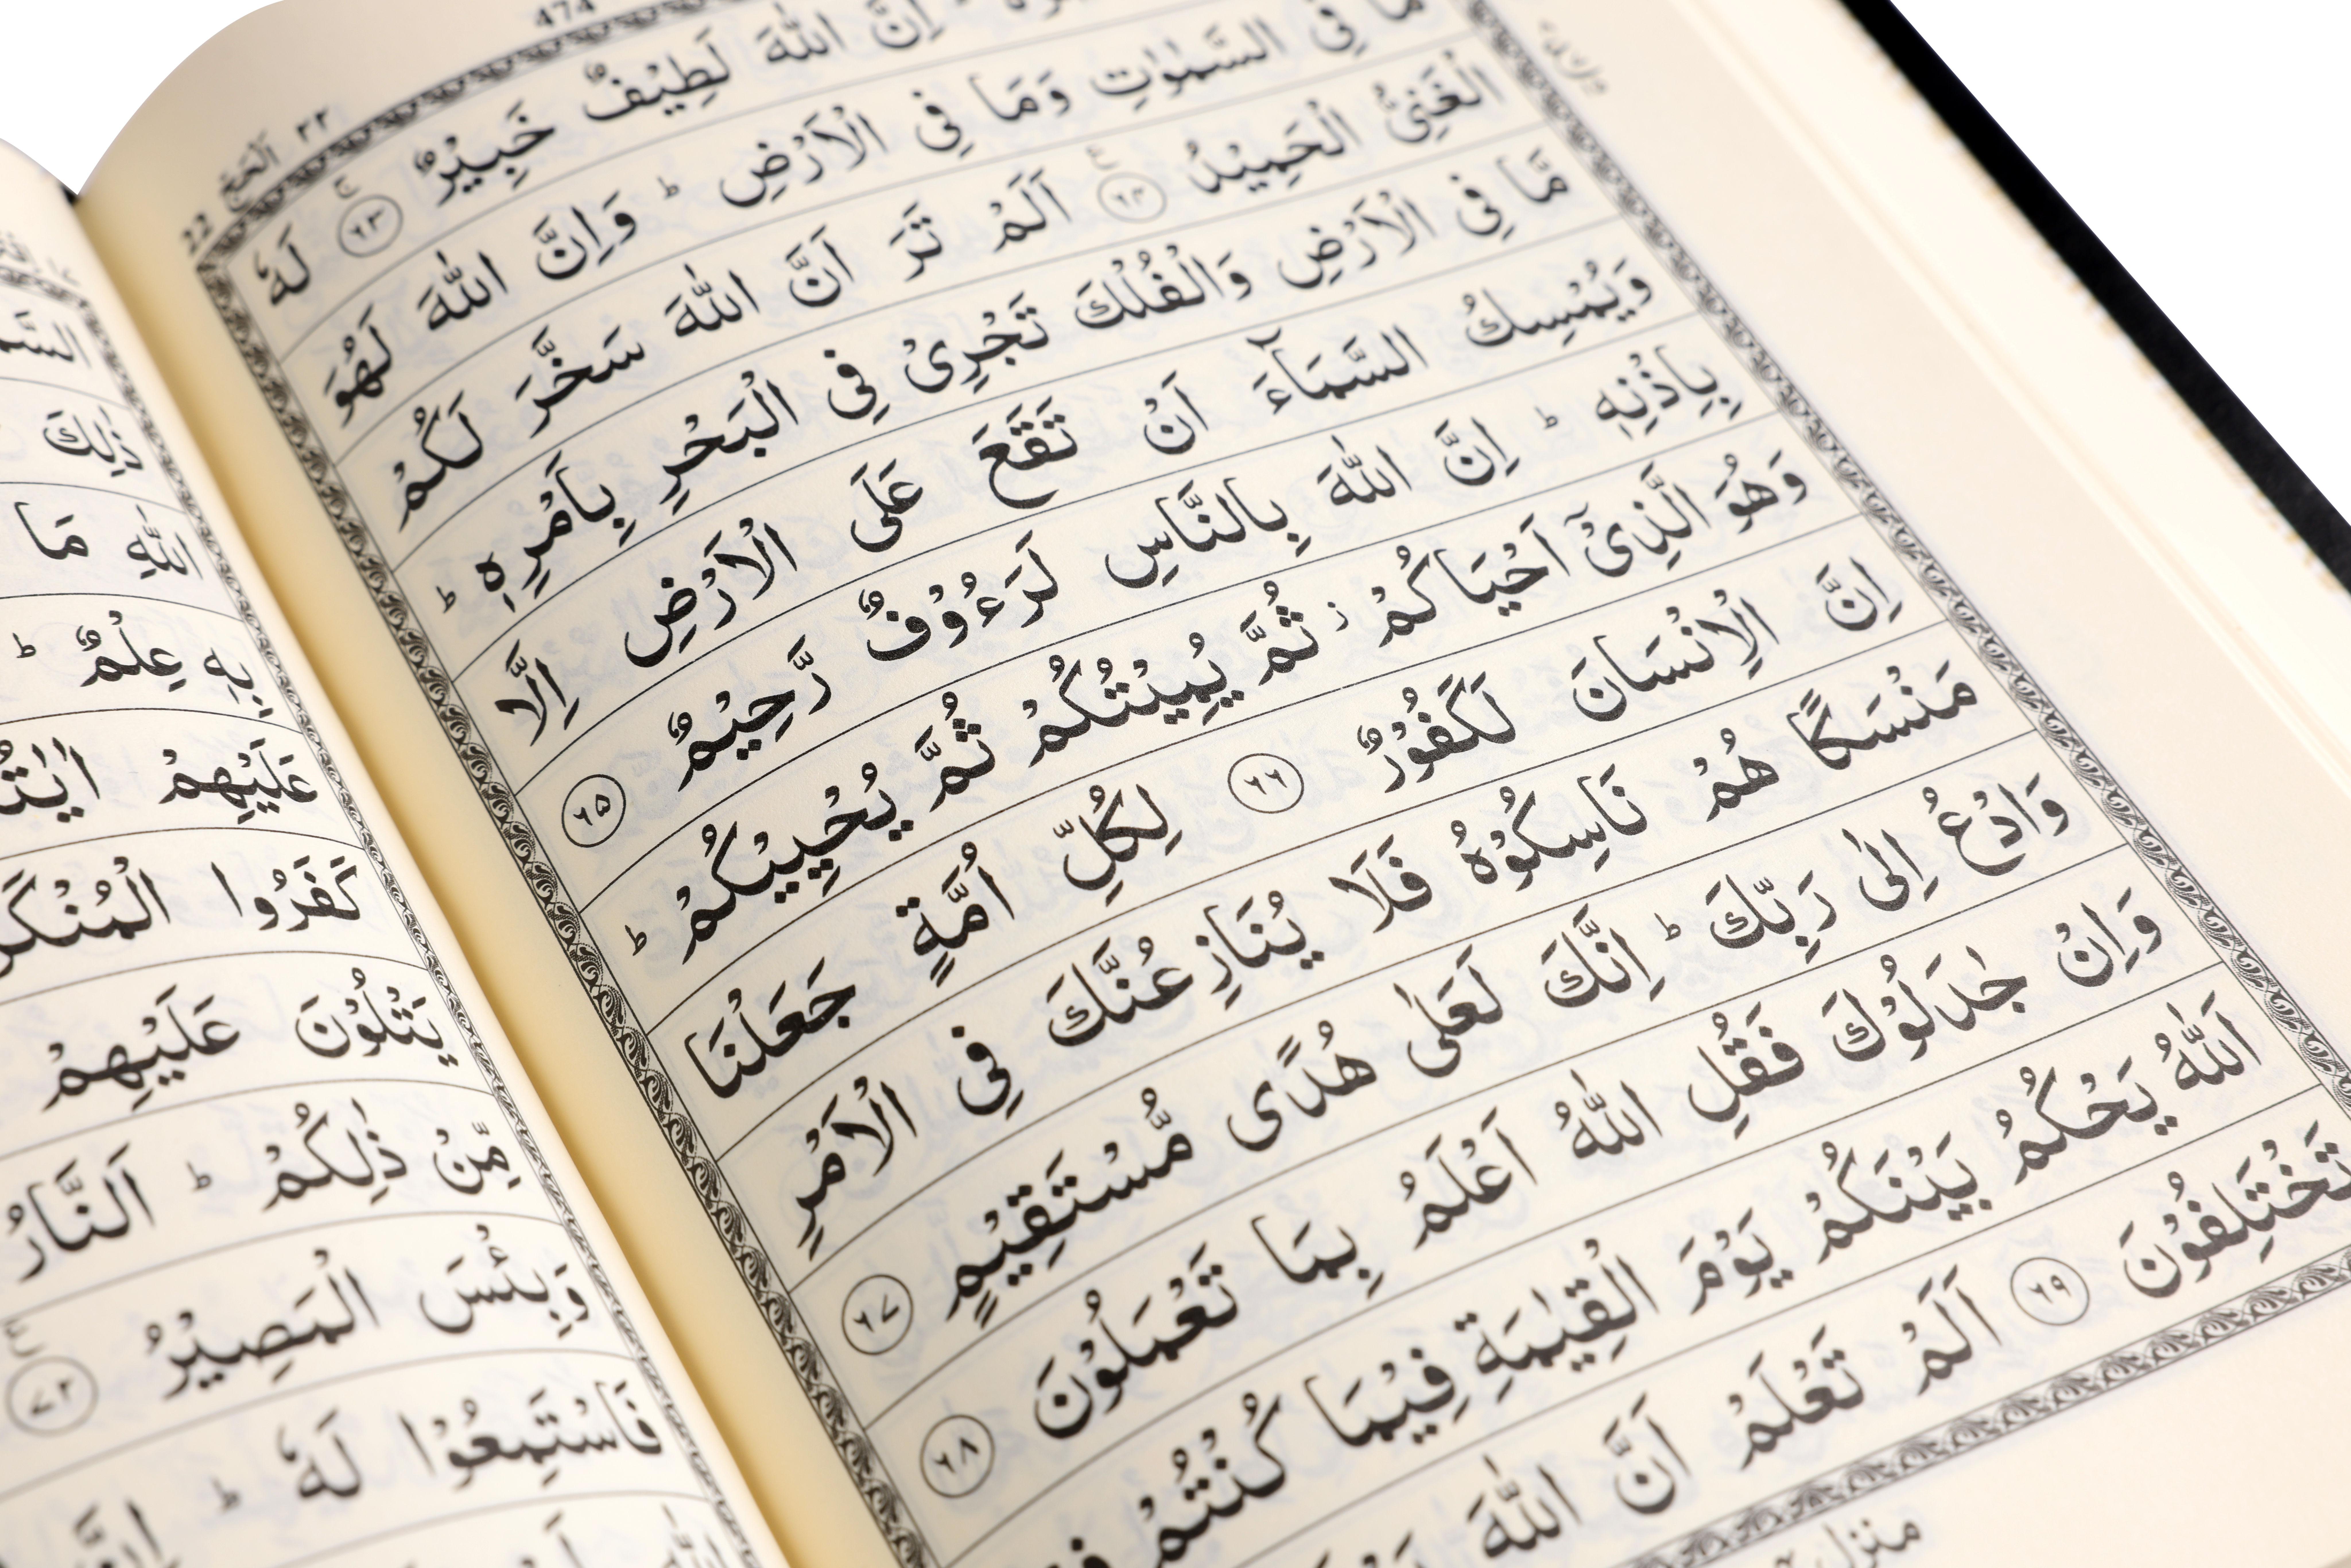 474
22 اَلْحَجّ ٢٢
اِنَّ اللّٰهَ لَطِيْفٌ خَبِيْرٌ ﴿٦٣﴾ ج لَهٗ
مَا فِى السَّمٰوٰتِ وَمَا فِى الْاَرْضِ ؕ وَاِنَّ اللّٰهَ لَهُوَ
الْغَنِىُّ الْحَمِيْدُ ﴿٦٤﴾ اَلَمْ تَرَ اَنَّ اللّٰهَ سَخَّرَ لَكُمْ
مَّا فِى الْاَرْضِ وَالْفُلْكَ تَجْرِىْ فِى الْبَحْرِ بِاَمْرِهٖ ؕ
وَيُمْسِكُ السَّمَآءَ اَنْ تَقَعَ عَلَى الْاَرْضِ اِلَّا
بِاِذْنِهٖ ؕ اِنَّ اللّٰهَ بِالنَّاسِ لَرَءُوْفٌ رَّحِيْمٌ ﴿٦٥﴾
وَهُوَ الَّذِىْۤ اَحْيَاكُمْ ز ثُمَّ يُمِيْتُكُمْ ثُمَّ يُحْيِيْكُمْ ؕ
اِنَّ الْاِنْسَانَ لَكَفُوْرٌ ﴿٦٦﴾ لِكُلِّ اُمَّةٍ جَعَلْنَا
مَنْسَكًا هُمْ نَاسِكُوْهُ فَلَا يُنَازِعُنَّكَ فِى الْاَمْرِ
وَادْعُ اِلٰى رَبِّكَ ؕ اِنَّكَ لَعَلٰى هُدًى مُّسْتَقِيْمٍ ﴿٦٧﴾
وَاِنْ جٰدَلُوْكَ فَقُلِ اللّٰهُ اَعْلَمُ بِمَا تَعْمَلُوْنَ ﴿٦٨﴾
اَللّٰهُ يَحْكُمُ بَيْنَكُمْ يَوْمَ الْقِيٰمَةِ فِيْمَا كُنْتُمْ
تَخْتَلِفُوْنَ ﴿٦٩﴾ اَلَمْ تَعْلَمْ اَنَّ اللّٰهَ
منزل
ذٰلِكَ
اللّٰهِ مَا
بِهٖ عِلْمٌ ؕ
عَلَيْهِمْ
كَفَرُوا
يَتْلُوْنَ عَلَيْهِمْ
مِّنْ ذٰلِكُمْ ؕ اَلنَّارُ
وَبِئْسَ الْمَصِيْرُ ﴿٧٢﴾
فَاسْتَمِعُوْا لَهٗ ؕ